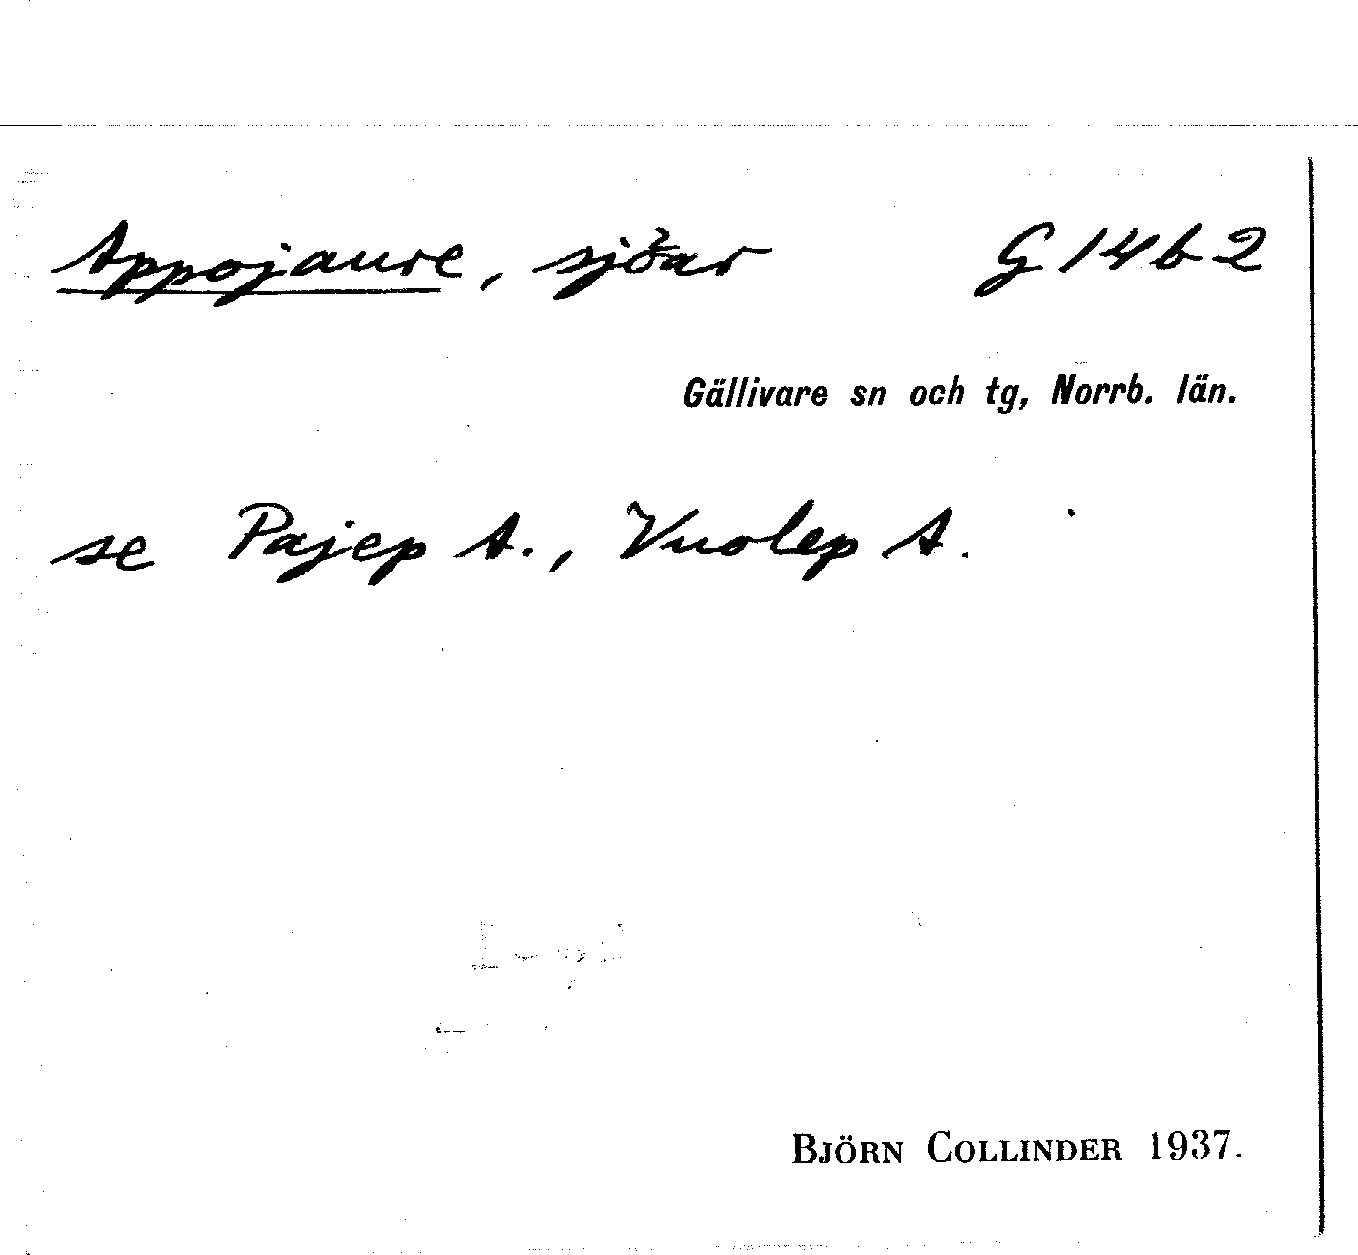 Appojaure, sjöar G 14 b 2
Gällivare sn och tg, Norrb. län.
se Pajep A., Vuolep A.
BJÖRN COLLINDER 1937.